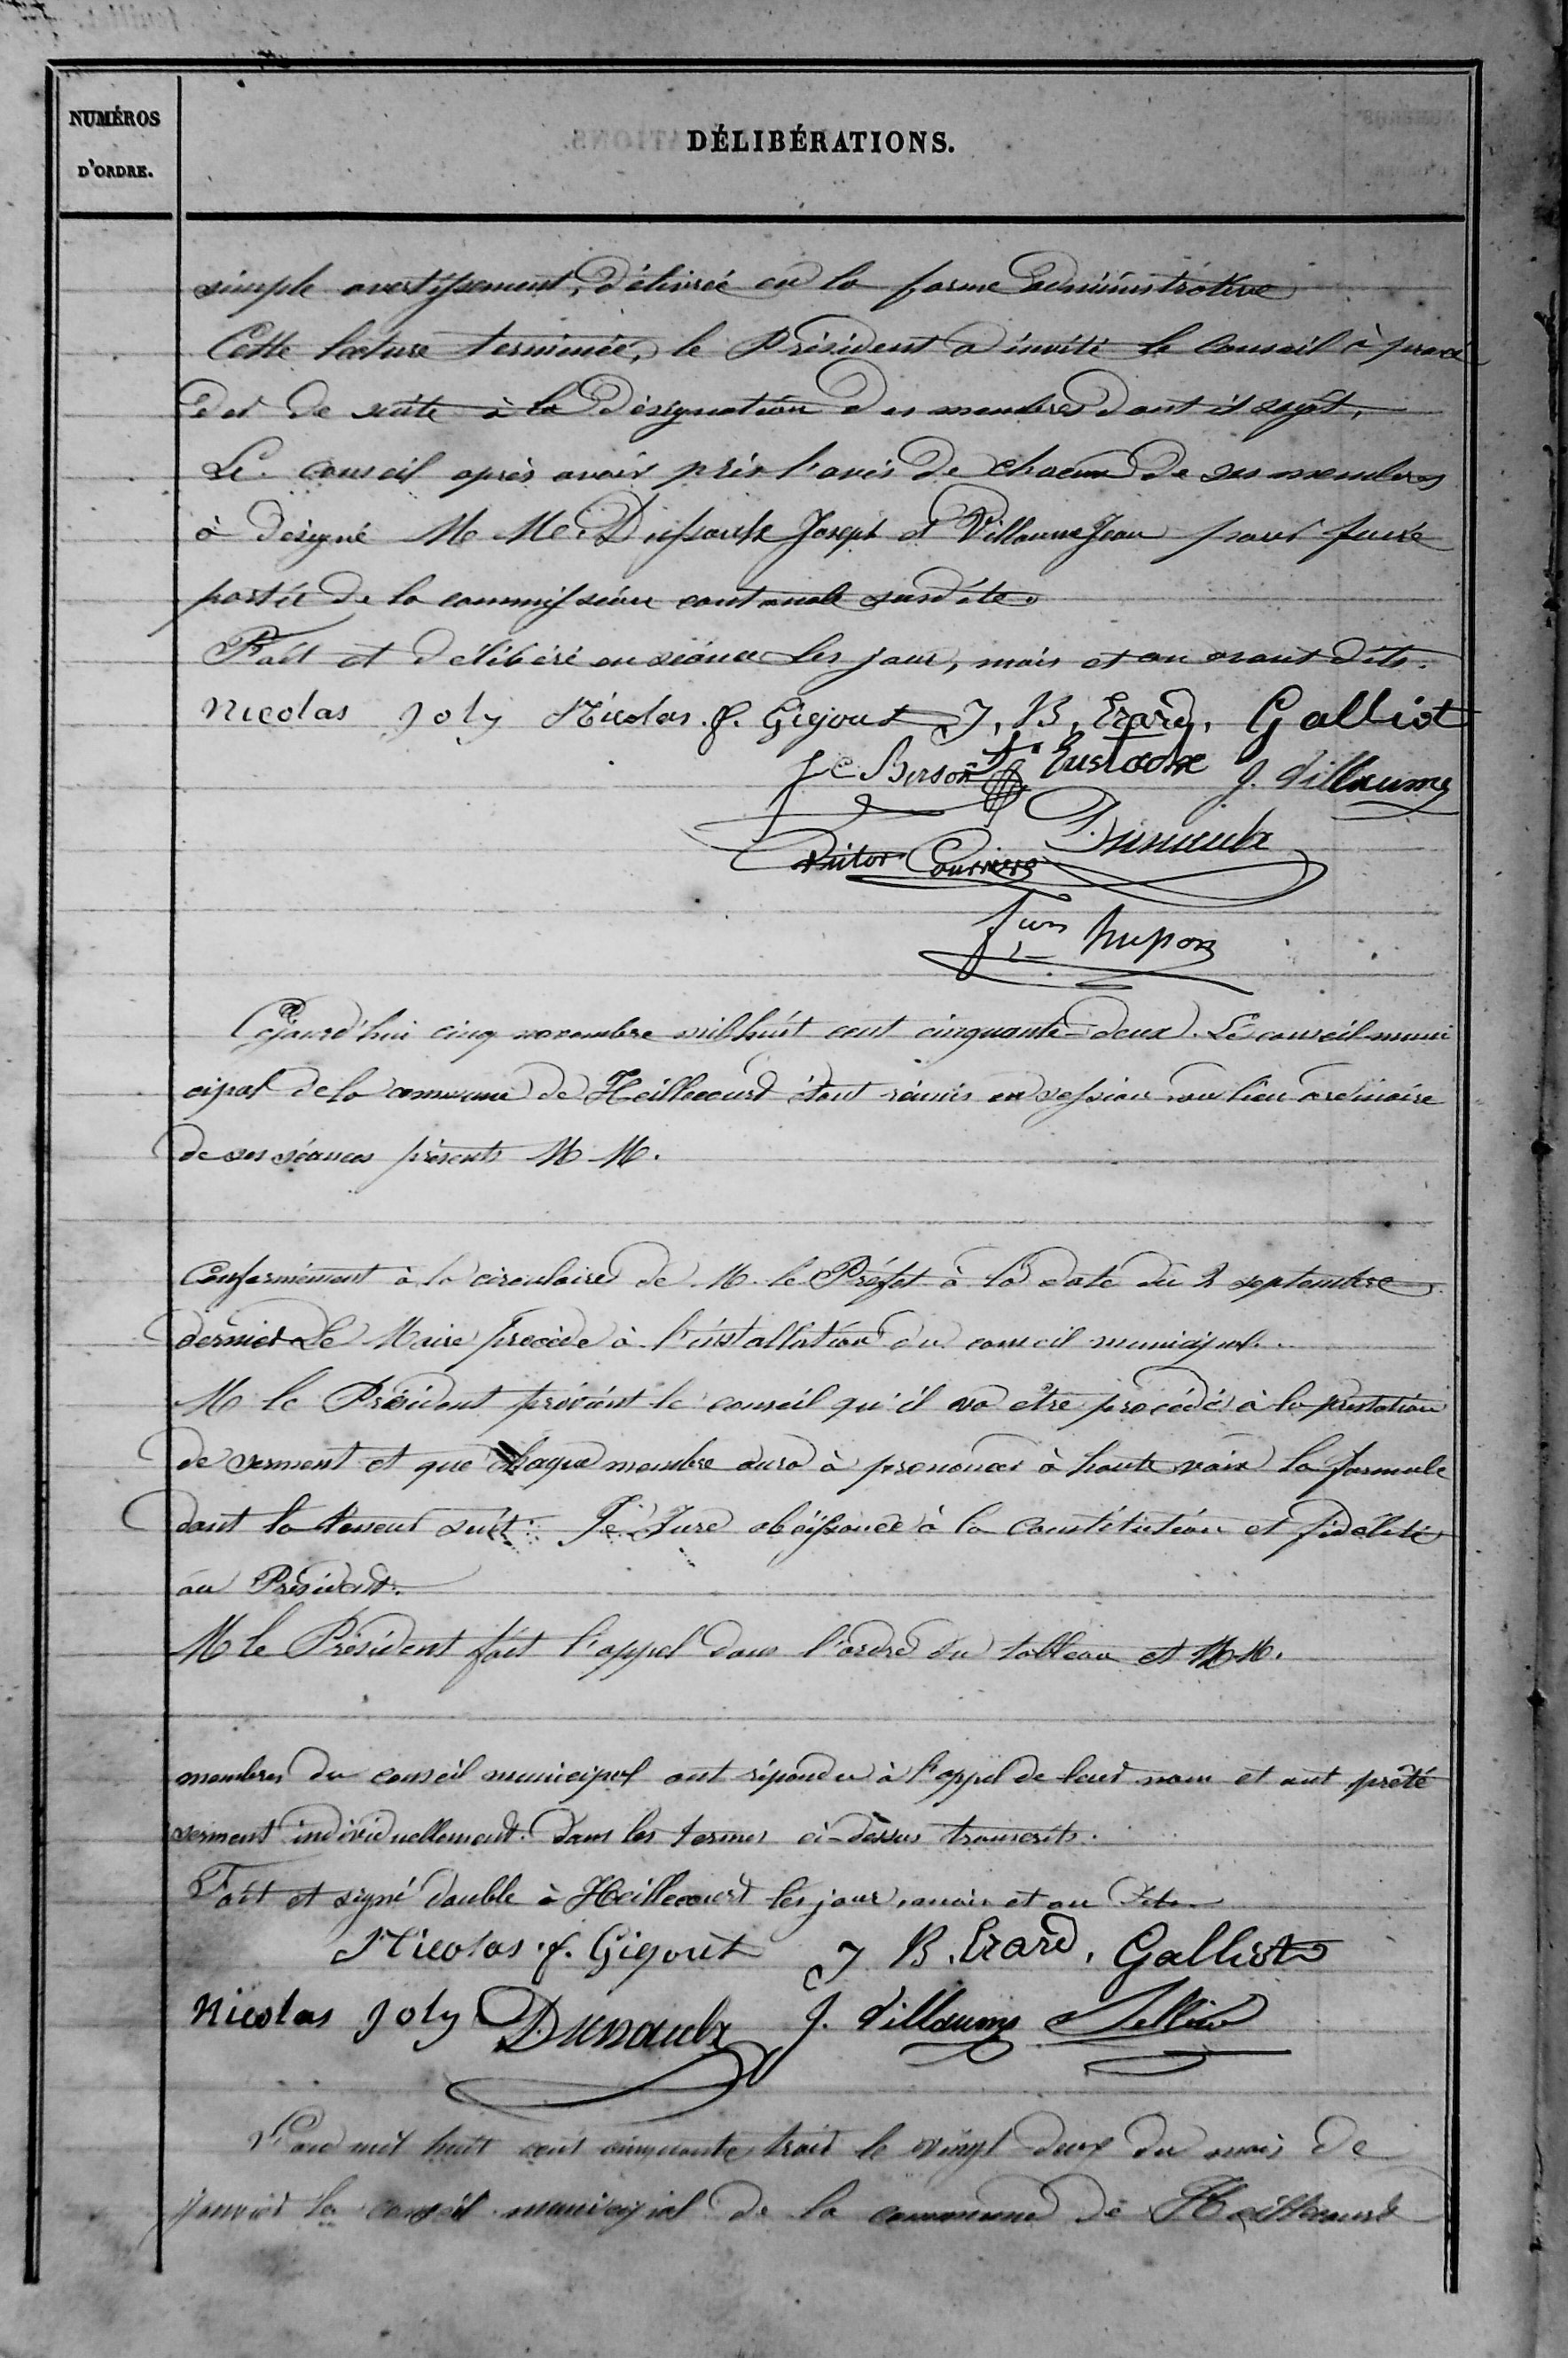 NUMÉROS
D'ORDRE.
DÉLIBÉRATIONS.
simple avertissement, délivré en la forme administrative
Cette lecture terminée, le Président a invité le Conseil à procé
der de suite à la désignation des membres dont il sagit,
Le conseil après avoir pris l'avis de chacun de ses membres
à désigné M M. Joseph et Villaume Jean pour faire
partie de la commission cantonale susdite.
Fait et délibéré en séance les jour, mois et an avant dits.
Nicolas Joly Nicolas. f. Gigout J. B. Erard, Galliot
J C Berson Eustache J. Villaume
Dunaub
Courrier
hupon
Cejourd'hui cinq novembre mil huit cent cinquante-deux. Le conseil muni
cipal de la commune de Heillecourt étant réunis en session au lieu ordinaire
de ses séances présents M M.
Conformément à la circulaire de M. le Préfet à la date du 2 septembre
dernier Le Maire procède à l'installation du conseil municipal.
M le Président prévient le conseil qu'il va etre procédé à la prestation
de serment et que chaque membre aura à prononcer à haute voix la formule
dont la teneur suit : Je Jure obéissance à la Constitution et fidélité
au Président.
M le Président fait l'appel dans l'ordre du tableau et M M.
membres du conseil municipal ont répondu à l'appel de leur nom et ont prêté
serment individuellement. Dans les termes ci-dessus transcrits.
Fait et signé double à Heillecourt les jour, mois et an dits
Nicolas. f. Gigout J B. Erard, Galliot
Nicolas Joly Dunaub J. Villaume
L'an mil huit cent cinquante trois le vingt-deux du mois de
janvier le conseil municipal de la commune de Heillecourt